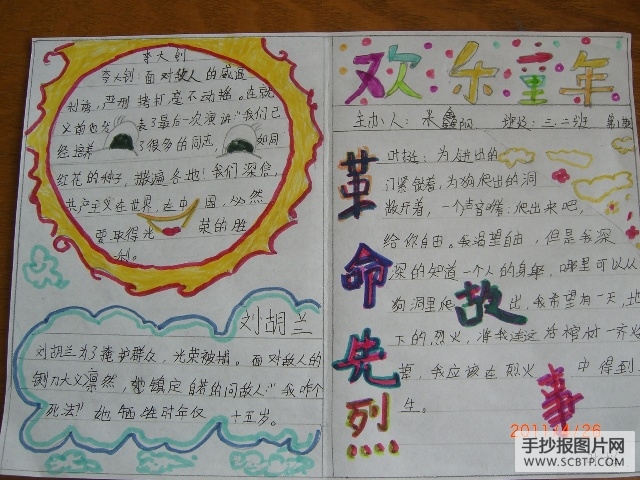 李大钊
李大钊:面对敌人的威逼
利诱,严刑拷打毫不动摇。在就
义前他发表了最后一次演讲"我们已
经培养了很多的同志,如同
红花的种子,撒遍各地!我们深信,
共产主义在世界,在中国,必然
要取得光荣的胜
利。
刘胡兰
刘胡兰为了掩护群众,光荣被捕。面对敌人的
铡刀大义凛然,她镇定自若的问敌人:"我咋个
死法?"她牺牲时年仅十五岁。
欢乐童年
主办人:米鑫阳 班级:三.二班 第1期
革命先烈故事
叶挺:为人进出的
门紧锁着,为狗爬出的洞
敞开着,一个声音喊:爬出来吧,
给你自由。我渴望自由,但是我深
深的知道一个人的身躯,哪里可以从
狗洞里爬出,我希望有一天,地
下的烈火,将我连这活棺材一齐烧
,我应该在烈火中得到
生。
2011/4/26
手抄报图片网
WWW.SCBTP.COM